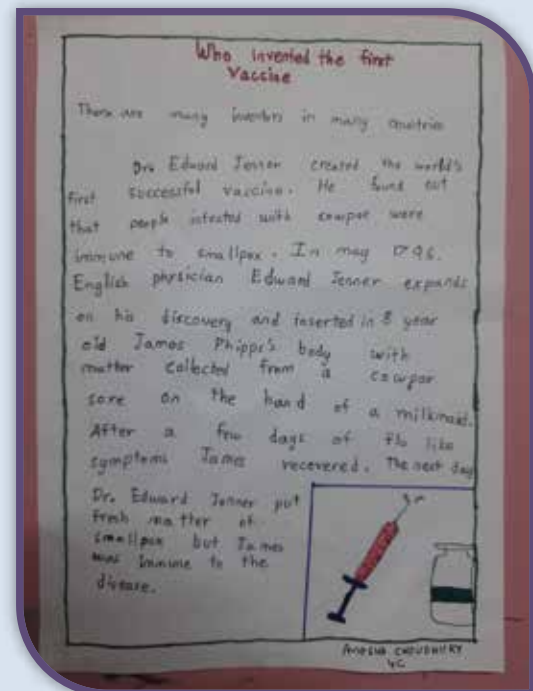 Who invented the first
Vaccine
There are many inventors in many countries
Dr. Edward Jenner created the world's
first successful vaccine. He found out
that people infected with cowpox were
immune to smallpox. In may 1796,
English physician Edward Jenner expands
on his discovery and inserted in 8 year
old James Phipps's body with
matter collected from a cowpox
sore on the hand of a milkmaid.
After a few days of flu like
symptoms James recovered. The next day
Dr. Edward Jenner put
fresh matter of
smallpox but James
was immune to the
disease.
CHOUDHURY
4C